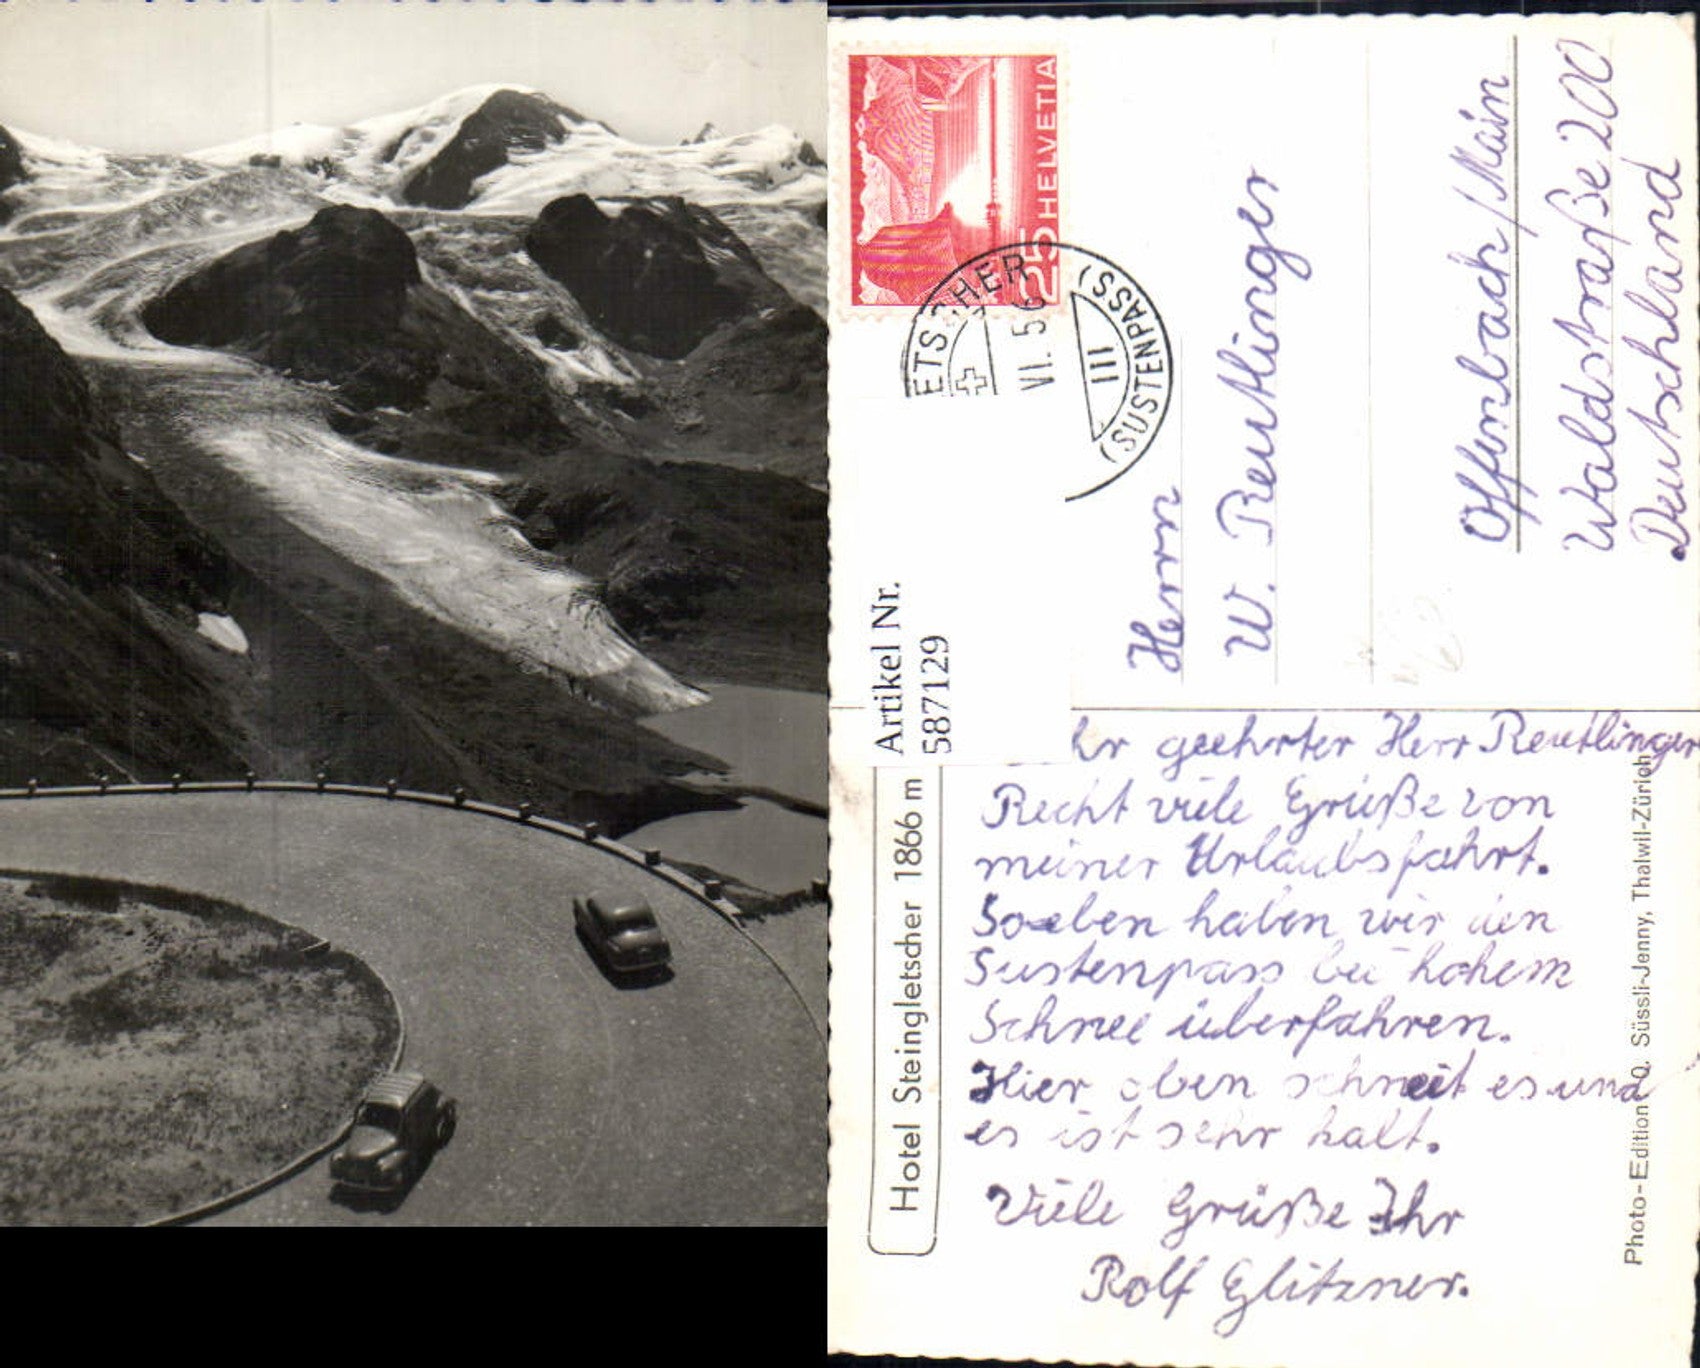 25 HELVETIA
ETSCHER
VI. 5
III
(SUSTENPASS)
Herrn
W. Reutlinger
Offenbach/Main
Waldstraße 200
Deutschland
Artikel Nr.
587129
Hotel Steingletscher 1866 m
hr geehrter Herr Reutlinger
Recht viele Grüße von
meiner Urlaubsfahrt.
Soeben haben wir den
Sustenpass bei hohem
Schnee überfahren.
Hier oben schneit es und
es ist sehr kalt.
Viele Grüße Ihr
Rolf Glitzner.
Photo-Edition O. Süssli-Jenny, Thalwil-Zürich